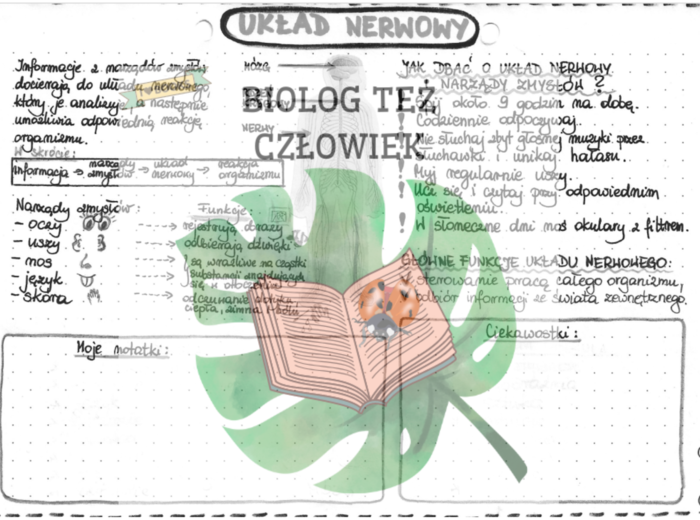 UKŁAD NERWOWY
Informacje z narządów zmysłów
docierają do układu nerwowego,
który je analizuje, a następnie
umożliwia odpowiednią reakcję
organizmu.
W skrócie:
Informacja → narządy zmysłów → układ nerwowy → reakcja organizmu
Narządy zmysłów:
- oczy
- uszy
- nos
- język
- skóra
Funkcje:
rejestrują obrazy
odbierają dźwięki
są wrażliwe na cząstki
substancji znajdujących
się w otoczeniu
odczuwanie dotyku,
ciepła, zimna i bólu
MÓZG
NERWY
BIOLOG TEŻ
CZŁOWIEK
JAK DBAĆ O UKŁAD NERWOWY
I NARZĄDY ZMYSŁÓW ?
! Śpij około 9 godzin na dobę.
! Codziennie odpoczywaj.
! Nie słuchaj zbyt głośnej muzyki przez
słuchawki i unikaj hałasu.
! Myj regularnie uszy.
! Ucz się i czytaj przy odpowiednim
oświetleniu.
! W słoneczne dni noś okulary z filtrem.
GŁÓWNE FUNKCJE UKŁADU NERWOWEGO:
sterowanie pracą całego organizmu,
odbiór informacji ze świata zewnętrznego.
Moje notatki:
Ciekawostki: